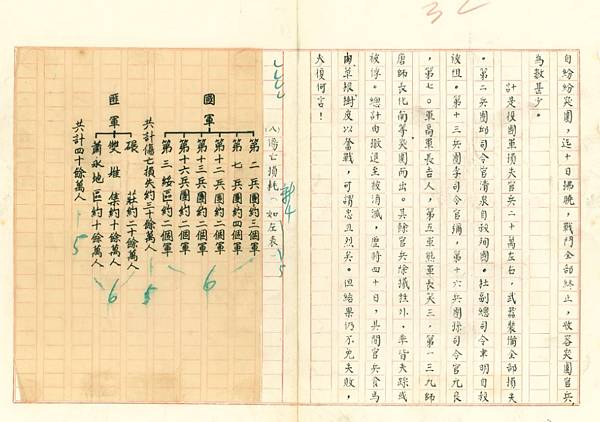 自紛紛突圍，迄十日拂曉，戰鬥全部終止，收容突圍官兵，
為數甚少。
計是役國軍損失官兵二十萬左右，武器裝備全部損失
。第二兵團邱司令官清泉自殺殉國。杜副總司令聿明自殺
被阻。第十三兵團李司令官彌，第十六兵團孫司令官元良
，第七〇軍高軍長吉人，第五軍熊軍長笑三，第一三九師
唐師長化南等突圍而出。其餘官兵除犧牲外，率皆失踪或
被俘。總計由撤退至被消滅，歷時四十日，其間官兵食馬
肉草根樹皮以奮戰，可謂忠且烈矣。但結果仍不免失敗，
夫復何言！
(八)傷亡損耗（如左表）
國軍
第二兵團約三個軍
第七兵團約四個軍
第十二兵團約四個軍
第十三兵團約二個軍
第十六兵團約二個軍
第三綏區約二個軍
共計傷亡損失約三十餘萬人
匪軍
碾莊約二十餘萬人
雙堆集約十餘萬人
蕭永地區約十餘萬人
共計四十餘萬人
#4
5
6
5
6
5